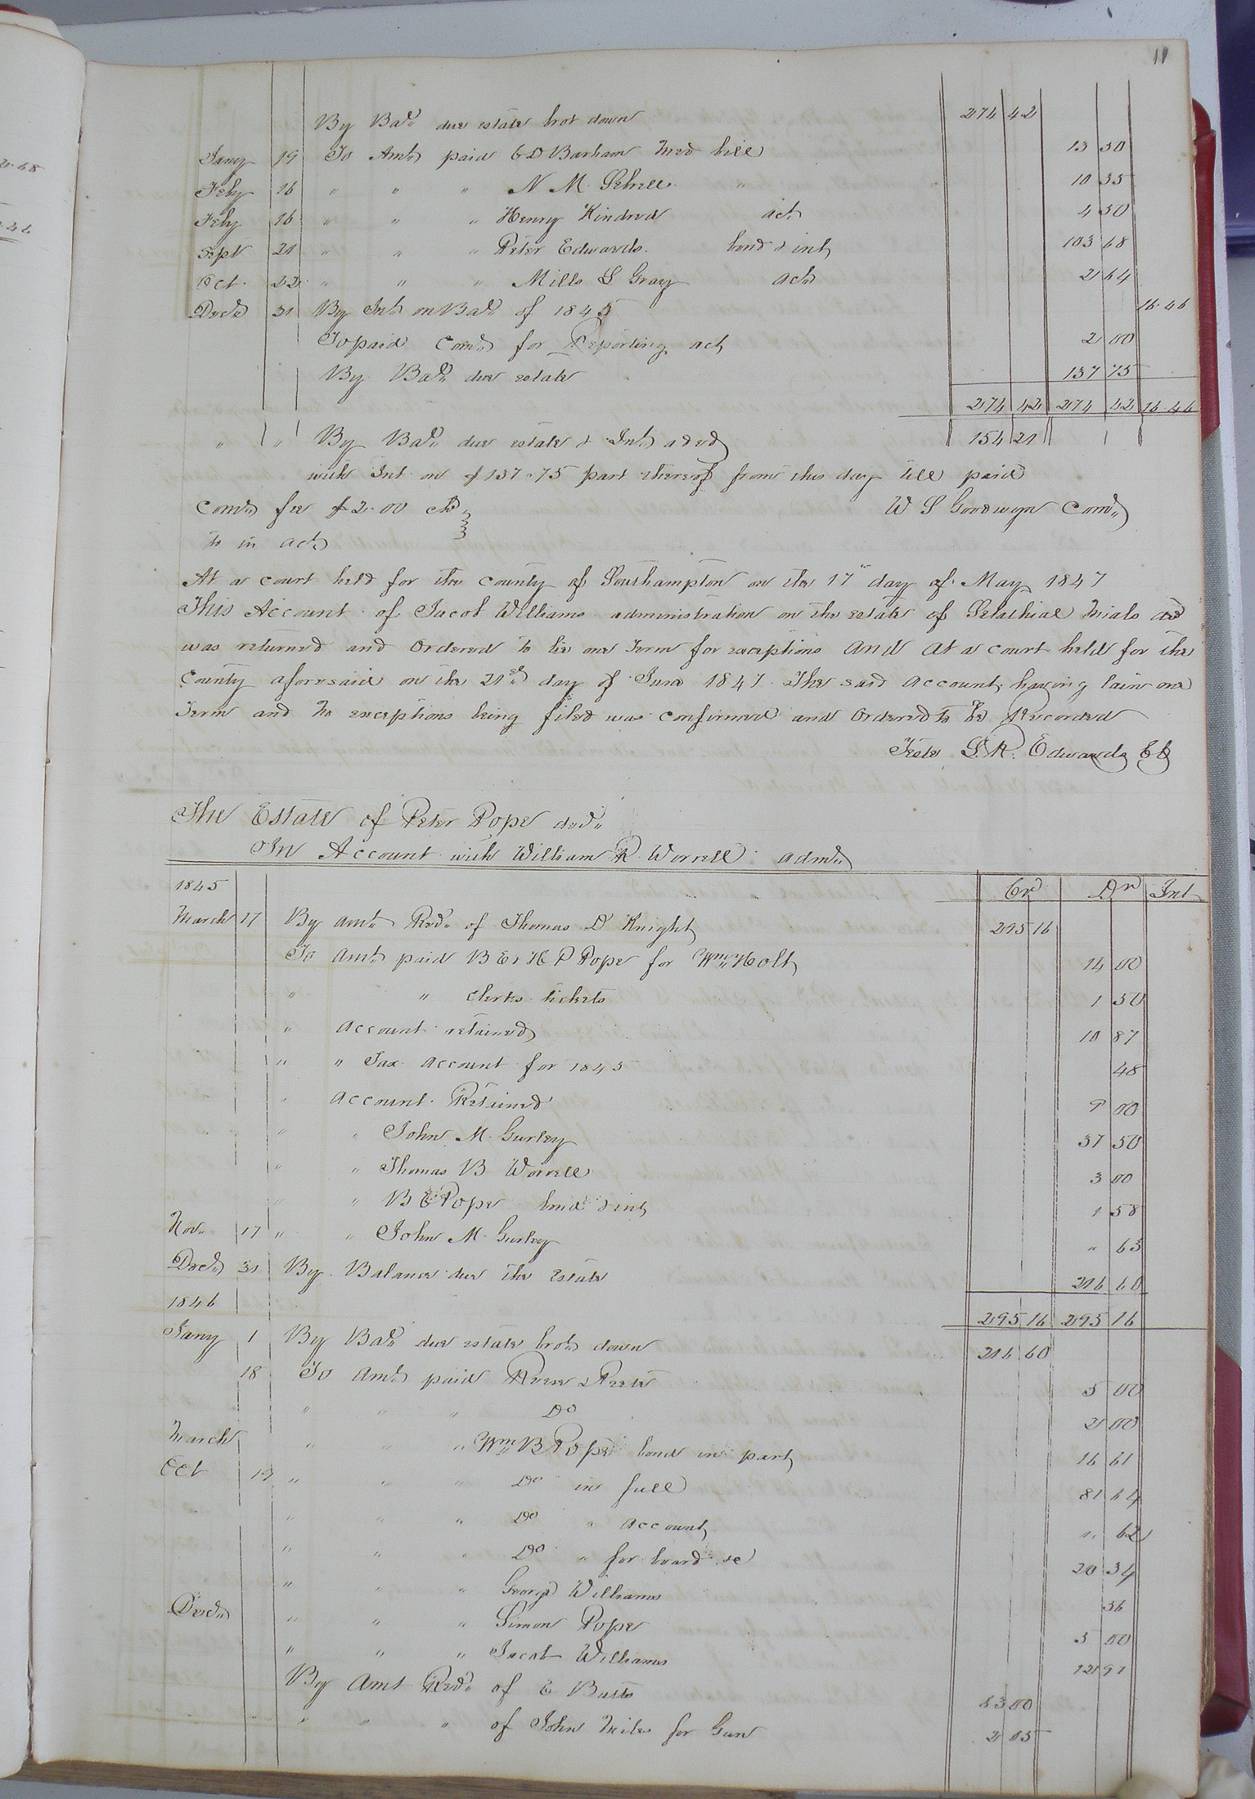 11
By Bal. due estate brot down 274 42
Jany 19 To Amt paid C D Barham Med bill 13 50
Feby 16 " " " N M Sebrell " 10 35
Feby 16 " " " Henry Kindred act 4 50
Sept 21 " " " Peter Edwards. bond & int 103 68
Oct. 22 " " " Mills S Gray act 2 64
Decr 31 By Int on Bal of 1845 16 46
To paid Comr for Reporting act 2 00
By Bal. due estate 137 75
274 42 274 42 16 46
" " By Bal. due estate & Int added 154 21
with Int on $137.75 part thereof from this day till paid
Comr fee $2.00 chd W S Goodwyn Comr
to in act
At a court held for the county of Southampton on the 17th day of May 1847
This Account of Jacob Williams administration on the estate of Selathial decd
was returned and Ordered to lie one Term for exceptions And At a court held for the
County aforesaid on the 21st day of June 1847 The said account having lain one
Term and No exceptions being filed was confirmed and Ordered to be Recorded
Teste L. R. Edwards Ck
The Estate of Peter Pope decd
In Account with William R Worrell admr
1845 Cr Dr Int
March 17 By amt Recd of Thomas D Knight 295 16
To Amt paid B E & H P Pope for Wm Holt 14 00
" " clerks tickets 1 50
" Account retained 10 87
" " Tax account for 1845 48
" Account Retained 9 00
" " John M. Gurley 37 50
" " Thomas B Worrell 3 00
" " B E Pope bond & int 1 58
Nov. 17 " " John M. Gurley " 63
Decr 31 By Balance due the Estate 216 60
1846 295 16 295 16
Jany 1 By Bal due estate brot down 216 60
18 To Amt paid 5 00
" " " Do 2 00
March " " " Wm B Pope bond in part 16 61
Oct " " " Do in full 81 64
" " " Do " account " 62
" " " Do " for board &c 20 34
" " " George Williams 36
Decr " " " Simon Pope 5 00
" " " Jacob Williams 12 91
By Amt Recd of E Butts 63 00
" " " of John for Gun 2 05